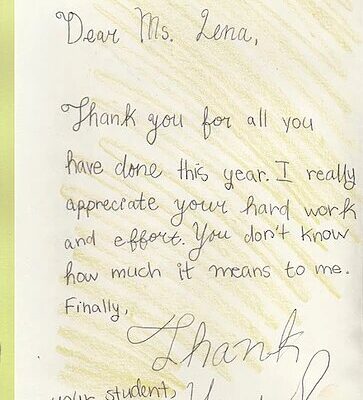 Dear Ms. Lena,
Thank you for all you
have done this year. I really
appreciate your hard work
and effort. You don't know
how much it means to me.
Finally,
Thank
your student,